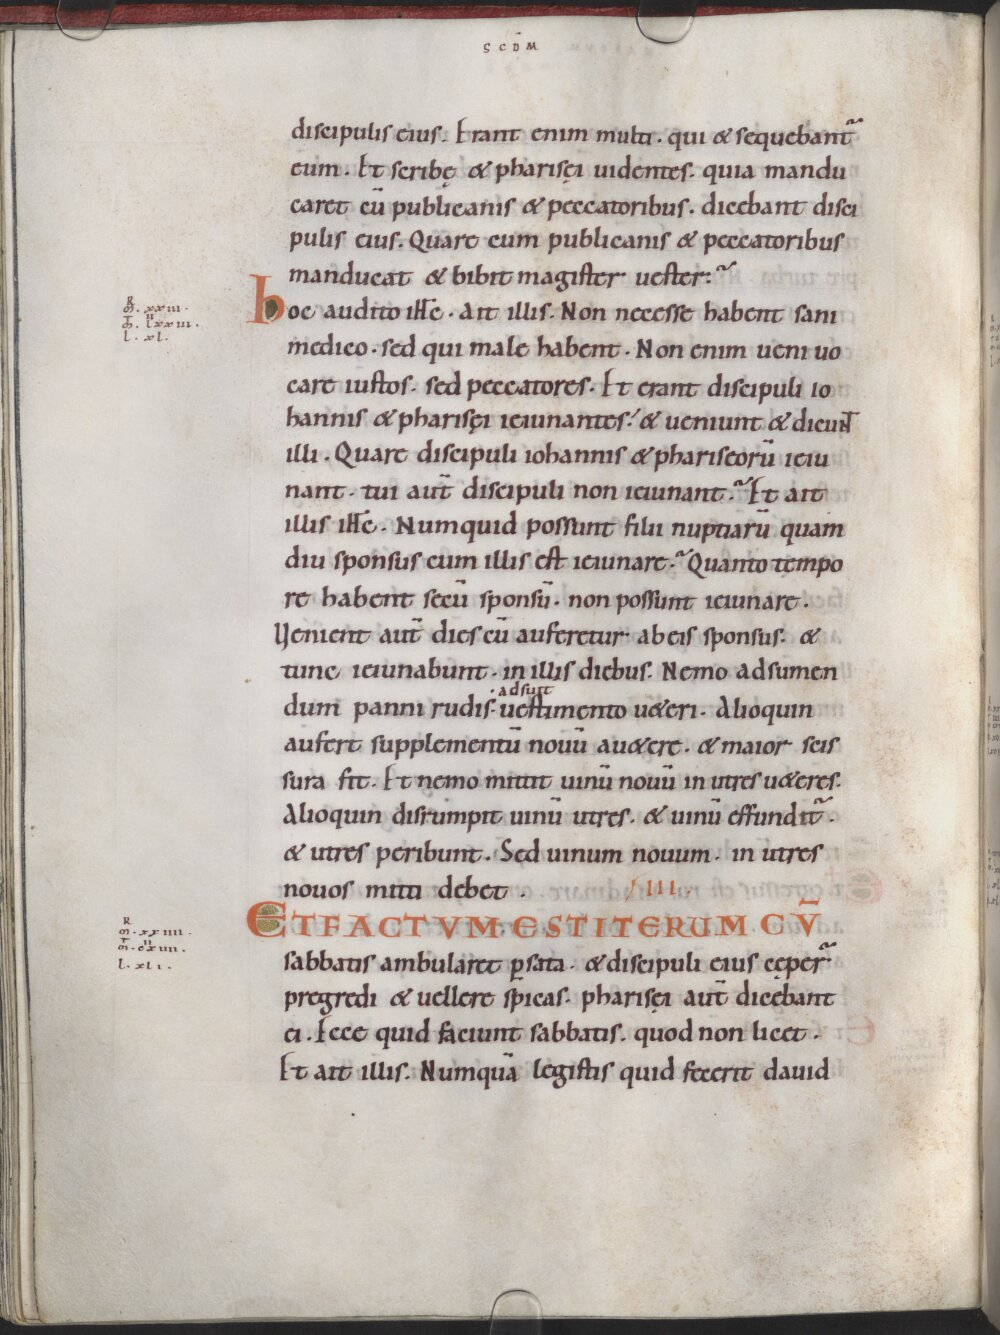 SCDM̄
discipulis eius. Erant enim multi. qui & sequebant᷑
eum. Et scribę & pharisęi uidentes. quia mandu
caret cū publicanis & peccatoribus. dicebant disci
pulis eius. Quare cum publicanis & peccatoribus
manducat & bibit magister uester:
hoc audito ih̅c. Ait illis. Non necesse habent sani
R
m. xxiii.
m. lxxiii.
l. xl.
medico. sed qui male habent. Non enim ueni uo
care iustos. sed peccatores. Et erant discipuli io
hannis & pharisęi ieiunantes. & ueniunt & dicunt
illi. Quare discipuli iohannis & phariseorū ieiu
nant. tui aut̄ discipuli non ieiunant. Et ait
illis ih̅c. Numquid possunt filii nuptiarū quam
diu sponsus cum illis est ieiunare. Quanto tempo
re habent secū sponsū. non possunt ieiunare.
Uenient aut̄ dies cū auferetur ab eis sponsus. &
tunc ieiunabunt. in illis diebus. Nemo adsumen
.adsuit
dum panni rudis. uestimento u&eri. Alioquin
aufert supplementū nouū au&ere. & maior scis
sura fit. Et nemo mittit uinū nouū in utres u&eres.
Alioquin disrumpit uinū utres. & uinū effundit᷑.
& utres peribunt. Sed uinum nouum. in utres
nouos mitti debet. IIII.
ET FACTVM. EST ITERUM CV̄
R
m. xxiiii.
m. cxuii.
l. xli.
sabbatis ambularet p̱ sata. & discipuli eius cęper᷑
pregredi & uellere spicas. pharisęi aut̄ dicebant
ei. Ecce quid faciunt sabbatis. quod non licet.
Et ait illis. Numquā legistis quid fecerit dauid